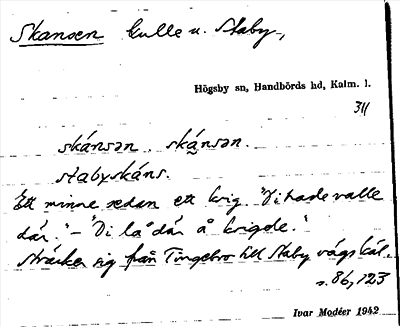 Skansen kulle u. Staby.,
Högsby sn, Handbörds hd, Kalm. l.
311
skánsən. skánsən.
stabyskáns.
Ett minne sedan ett krig. "Vi hade valle
där." – "Di la där å krigde."
sträcker sig från Tingebro till Staby vägskäl.
s. 86, 123
Ivar Modéer 1942